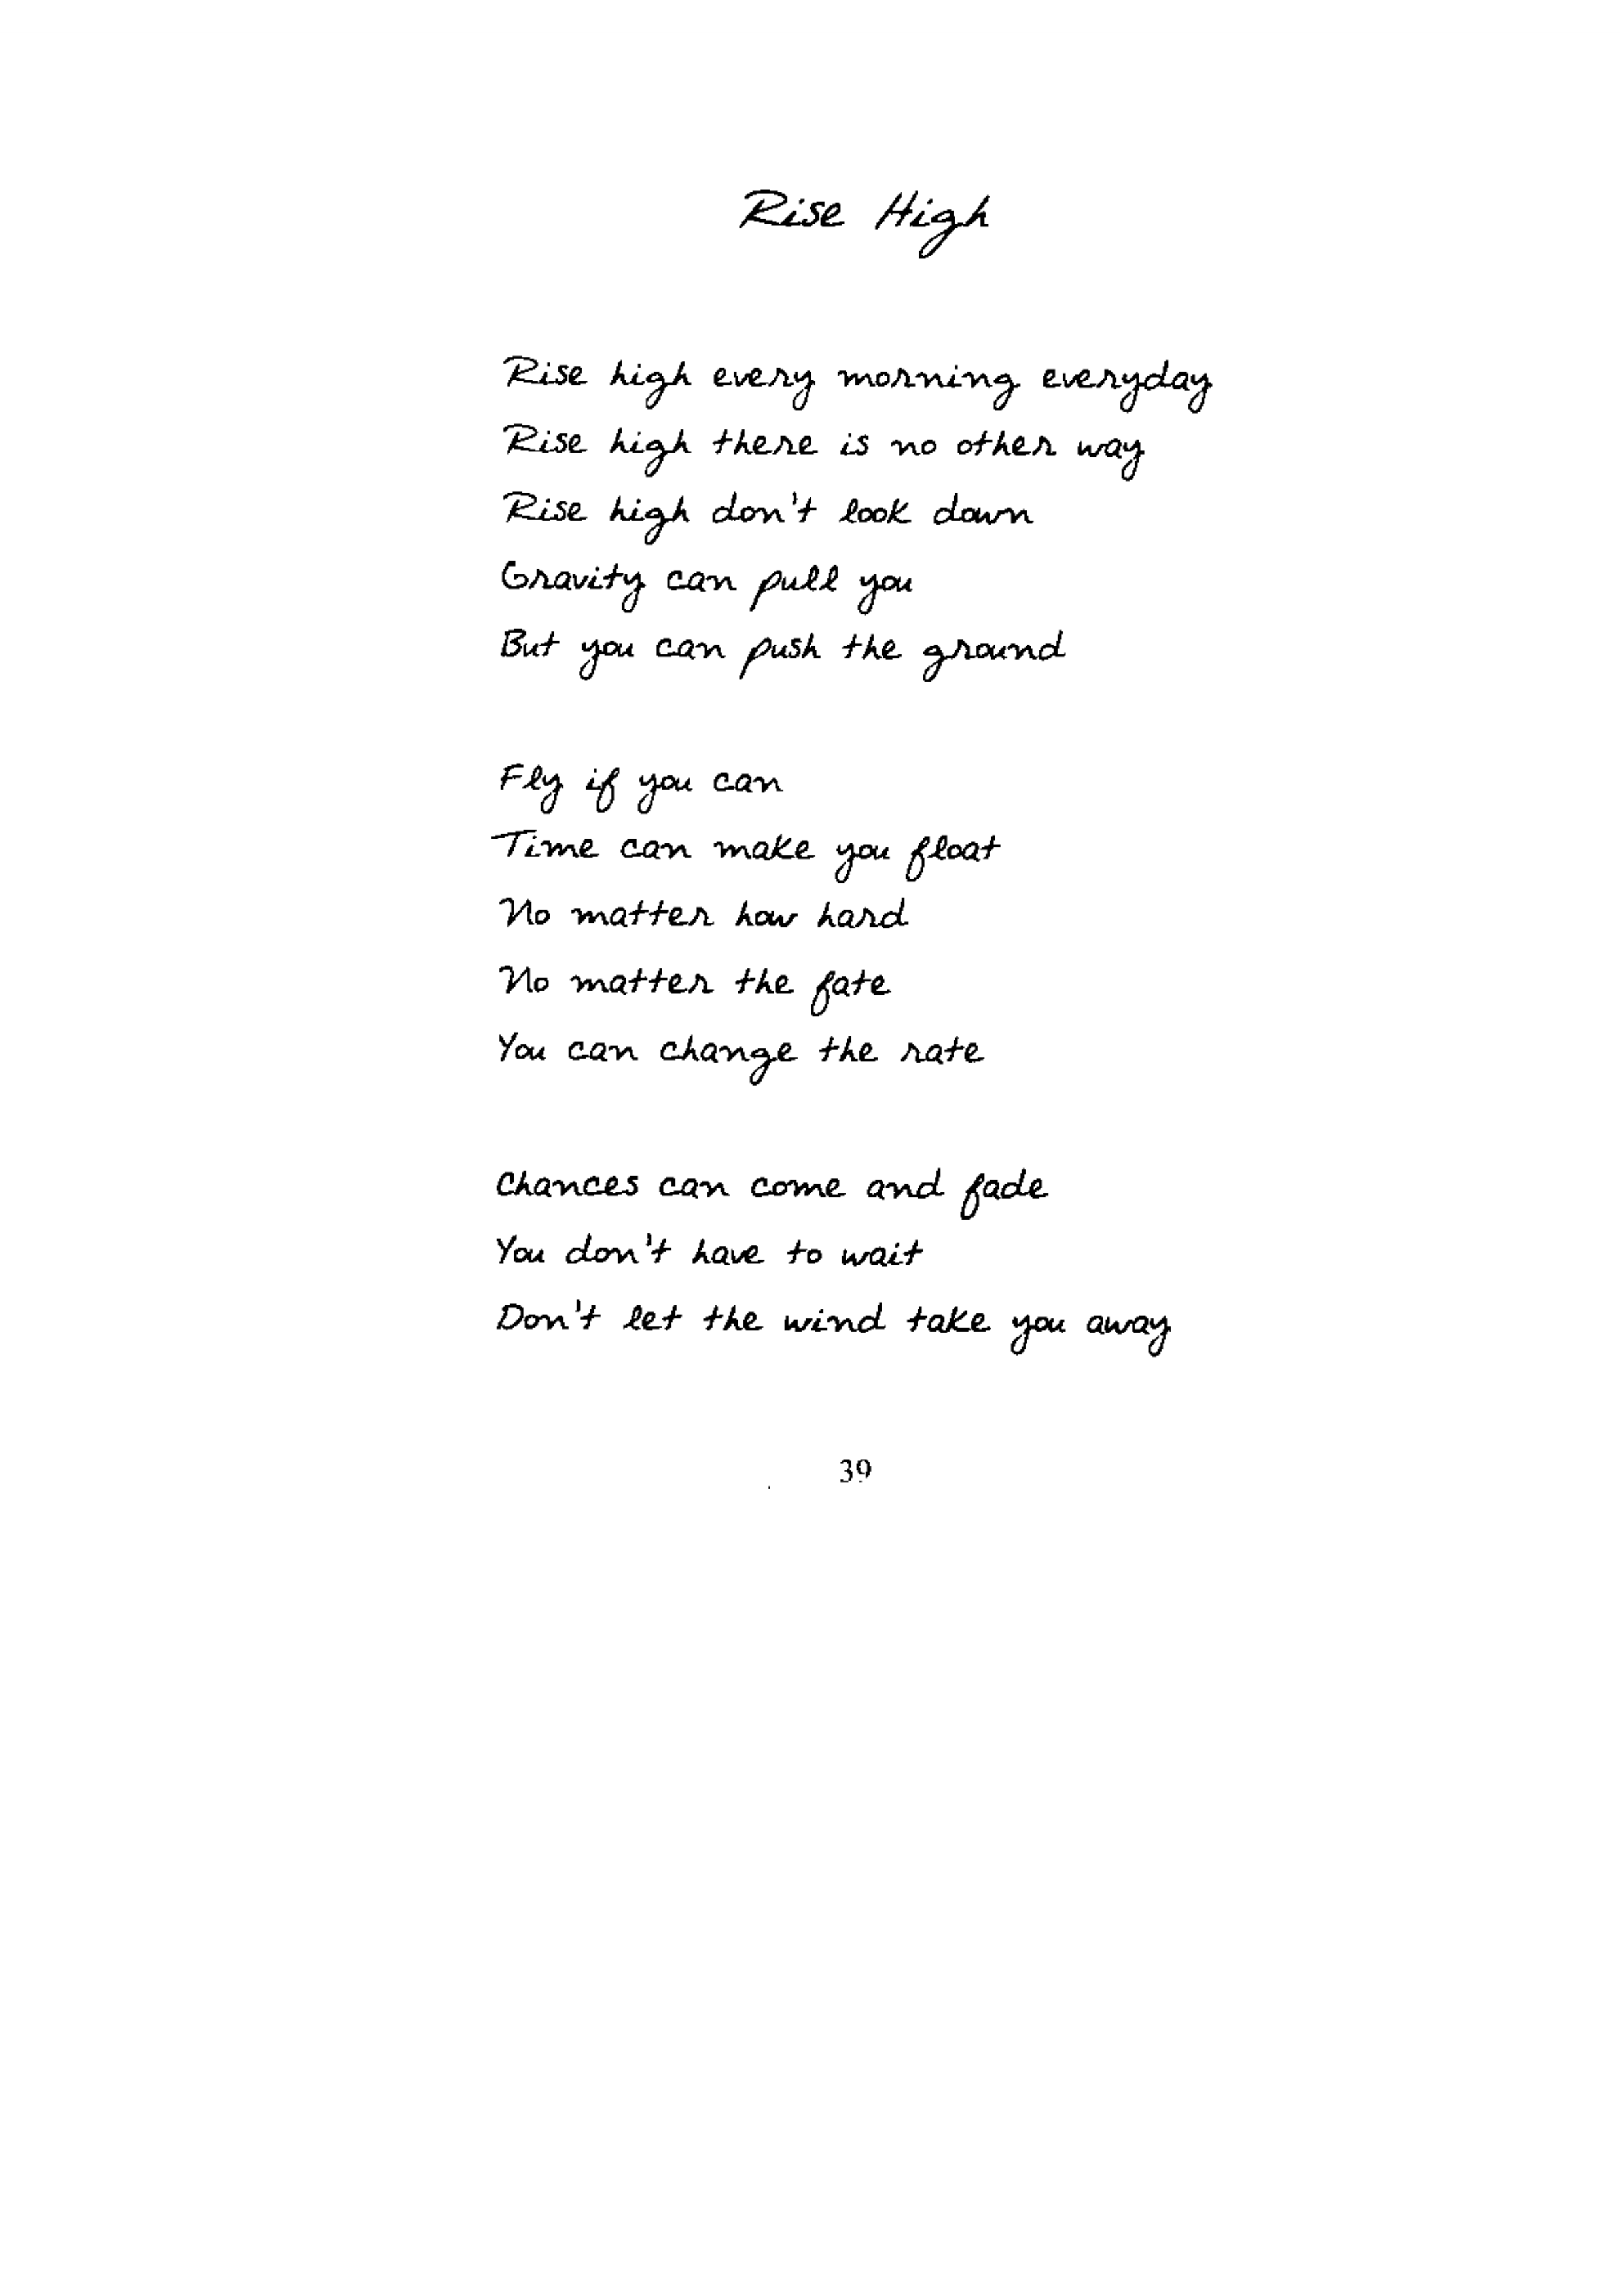 Rise High
Rise high every morning everyday
Rise high there is no other way
Rise high don't look down
Gravity can pull you
But you can push the ground
Fly if you can
Time can make you float
No matter how hard
No matter the fate
You can change the rate
Chances can come and fade
You don't have to wait
Don't let the wind take you away
39